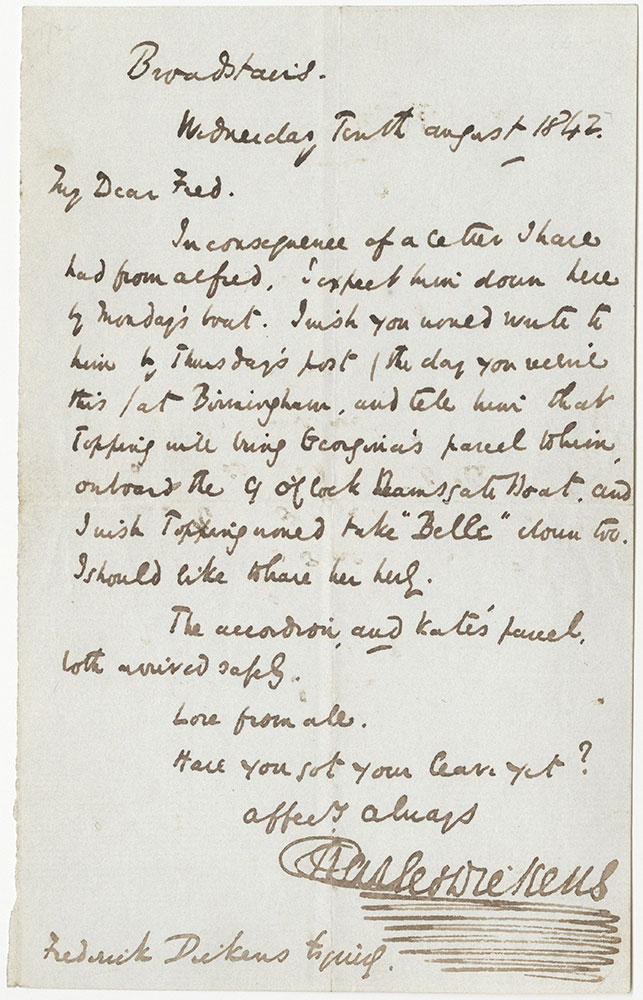 Broadstairs.
Wednesday Tenth August 1842.
My Dear Fred.
In consequence of a letter I have
had from Alfred, I expect him down here
by Monday's boat. I wish you would write to
him by Thursday's post (the day you receive
this) at Birmingham, and tell him that
Topping will bring Georgina's parcel to him
on board the 9 o'Clock Ramsgate Boat. and
I wish Topping would take "Belle" down too.
I should like to have her here.
The accordion, and Kate's parcel,
both arrived safely.
Love from all.
Have you got your leave yet?
affecy always
Charles Dickens
Frederick Dickens Esquire.